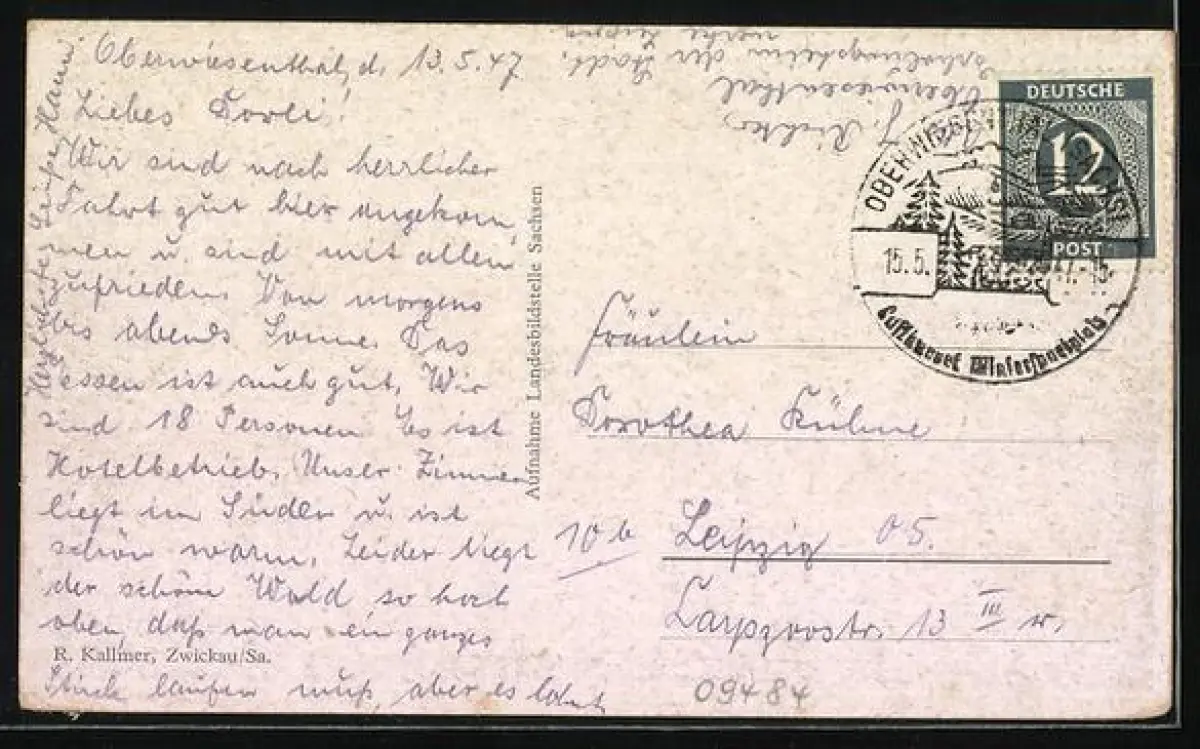 Oberwiesenthal, d. 13.5.47
Liebes Dorli!
Wir sind nach herrlicher
Fahrt gut hier angekom,
men u. sind mit allem
zufrieden. Von morgens
bis abends Sonne. Das
essen ist auch gut. Wir
sind 18 Personen Es ist
Hotelbetrieb. Unser Zimmer
liegt im Süden u. ist
schön warm. Leider liegt
der schöne Wald so hoch
oben, daß man ein ganzes
Stück laufen muß, aber es lohnt
Herzlichste Grüße Hanni
R. Kallmer, Zwickau/Sa.
Aufnahme Landesbildstelle Sachsen
Richter,
Oberwiesenthal
Erholungsheim der Stadt,
werke Leipzig
DEUTSCHE
12
POST
OBERWIESENTHAL
15.5.
Luftkurort Wintersportplatz
Fräulein
Dorothea Kühne
10b Leipzig O5.
13 III r.
09484